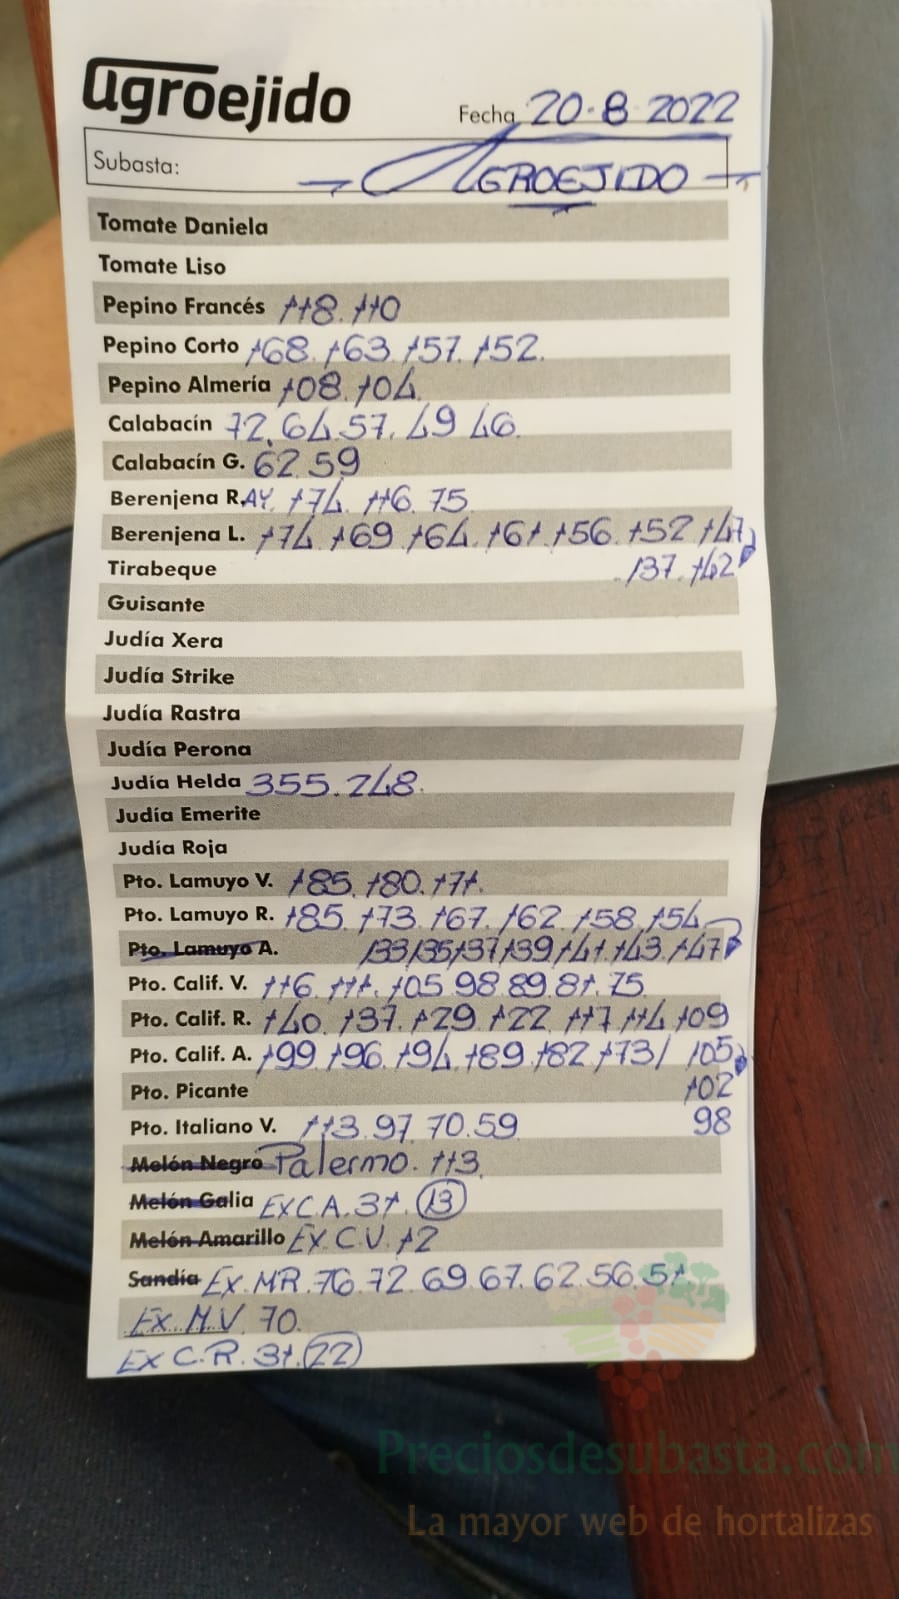 agroejido
Fecha 20-8-2022
Subasta: AGROEJIDO
Tomate Daniela
Tomate Liso
Pepino Francés 118. 110
Pepino Corto 168. 163. 157. 152.
Pepino Almería 108. 104.
Calabacín 72. 64. 57. 49 46.
Calabacín G. 62. 59
Berenjena R.AY. 174. 116. 75
Berenjena L. 174. 169. 164. 161. 156. 152 147
Tirabeque 137. 142
Guisante
Judía Xera
Judía Strike
Judía Rastra
Judía Perona
Judía Helda 355. 248.
Judía Emerite
Judía Roja
Pto. Lamuyo V. 185. 180. 171.
Pto. Lamuyo R. 185. 173. 167. 162. 158. 154
Pto. Lamuyo A. 133/135/137/139/141. 143. 147
Pto. Calif. V. 116. 111. 105 98 89. 81. 75
Pto. Calif. R. 140. 137. 129. 122. 117. 114 109
Pto. Calif. A. 199. 196. 194. 189. 182. 173/ 105
Pto. Picante 102
Pto. Italiano V. 113. 97. 70. 59 98
Melón Negro Palermo. 113.
Melón Galia EX C.A. 31. 13
Melón Amarillo EX. C.V. 12
Sandía Ex. MR. 76. 72. 69. 67. 62. 56. 51.
Ex. M.V. 70.
EX C.R. 31. 22
Preciosdesubasta.com
La mayor web de hortalizas